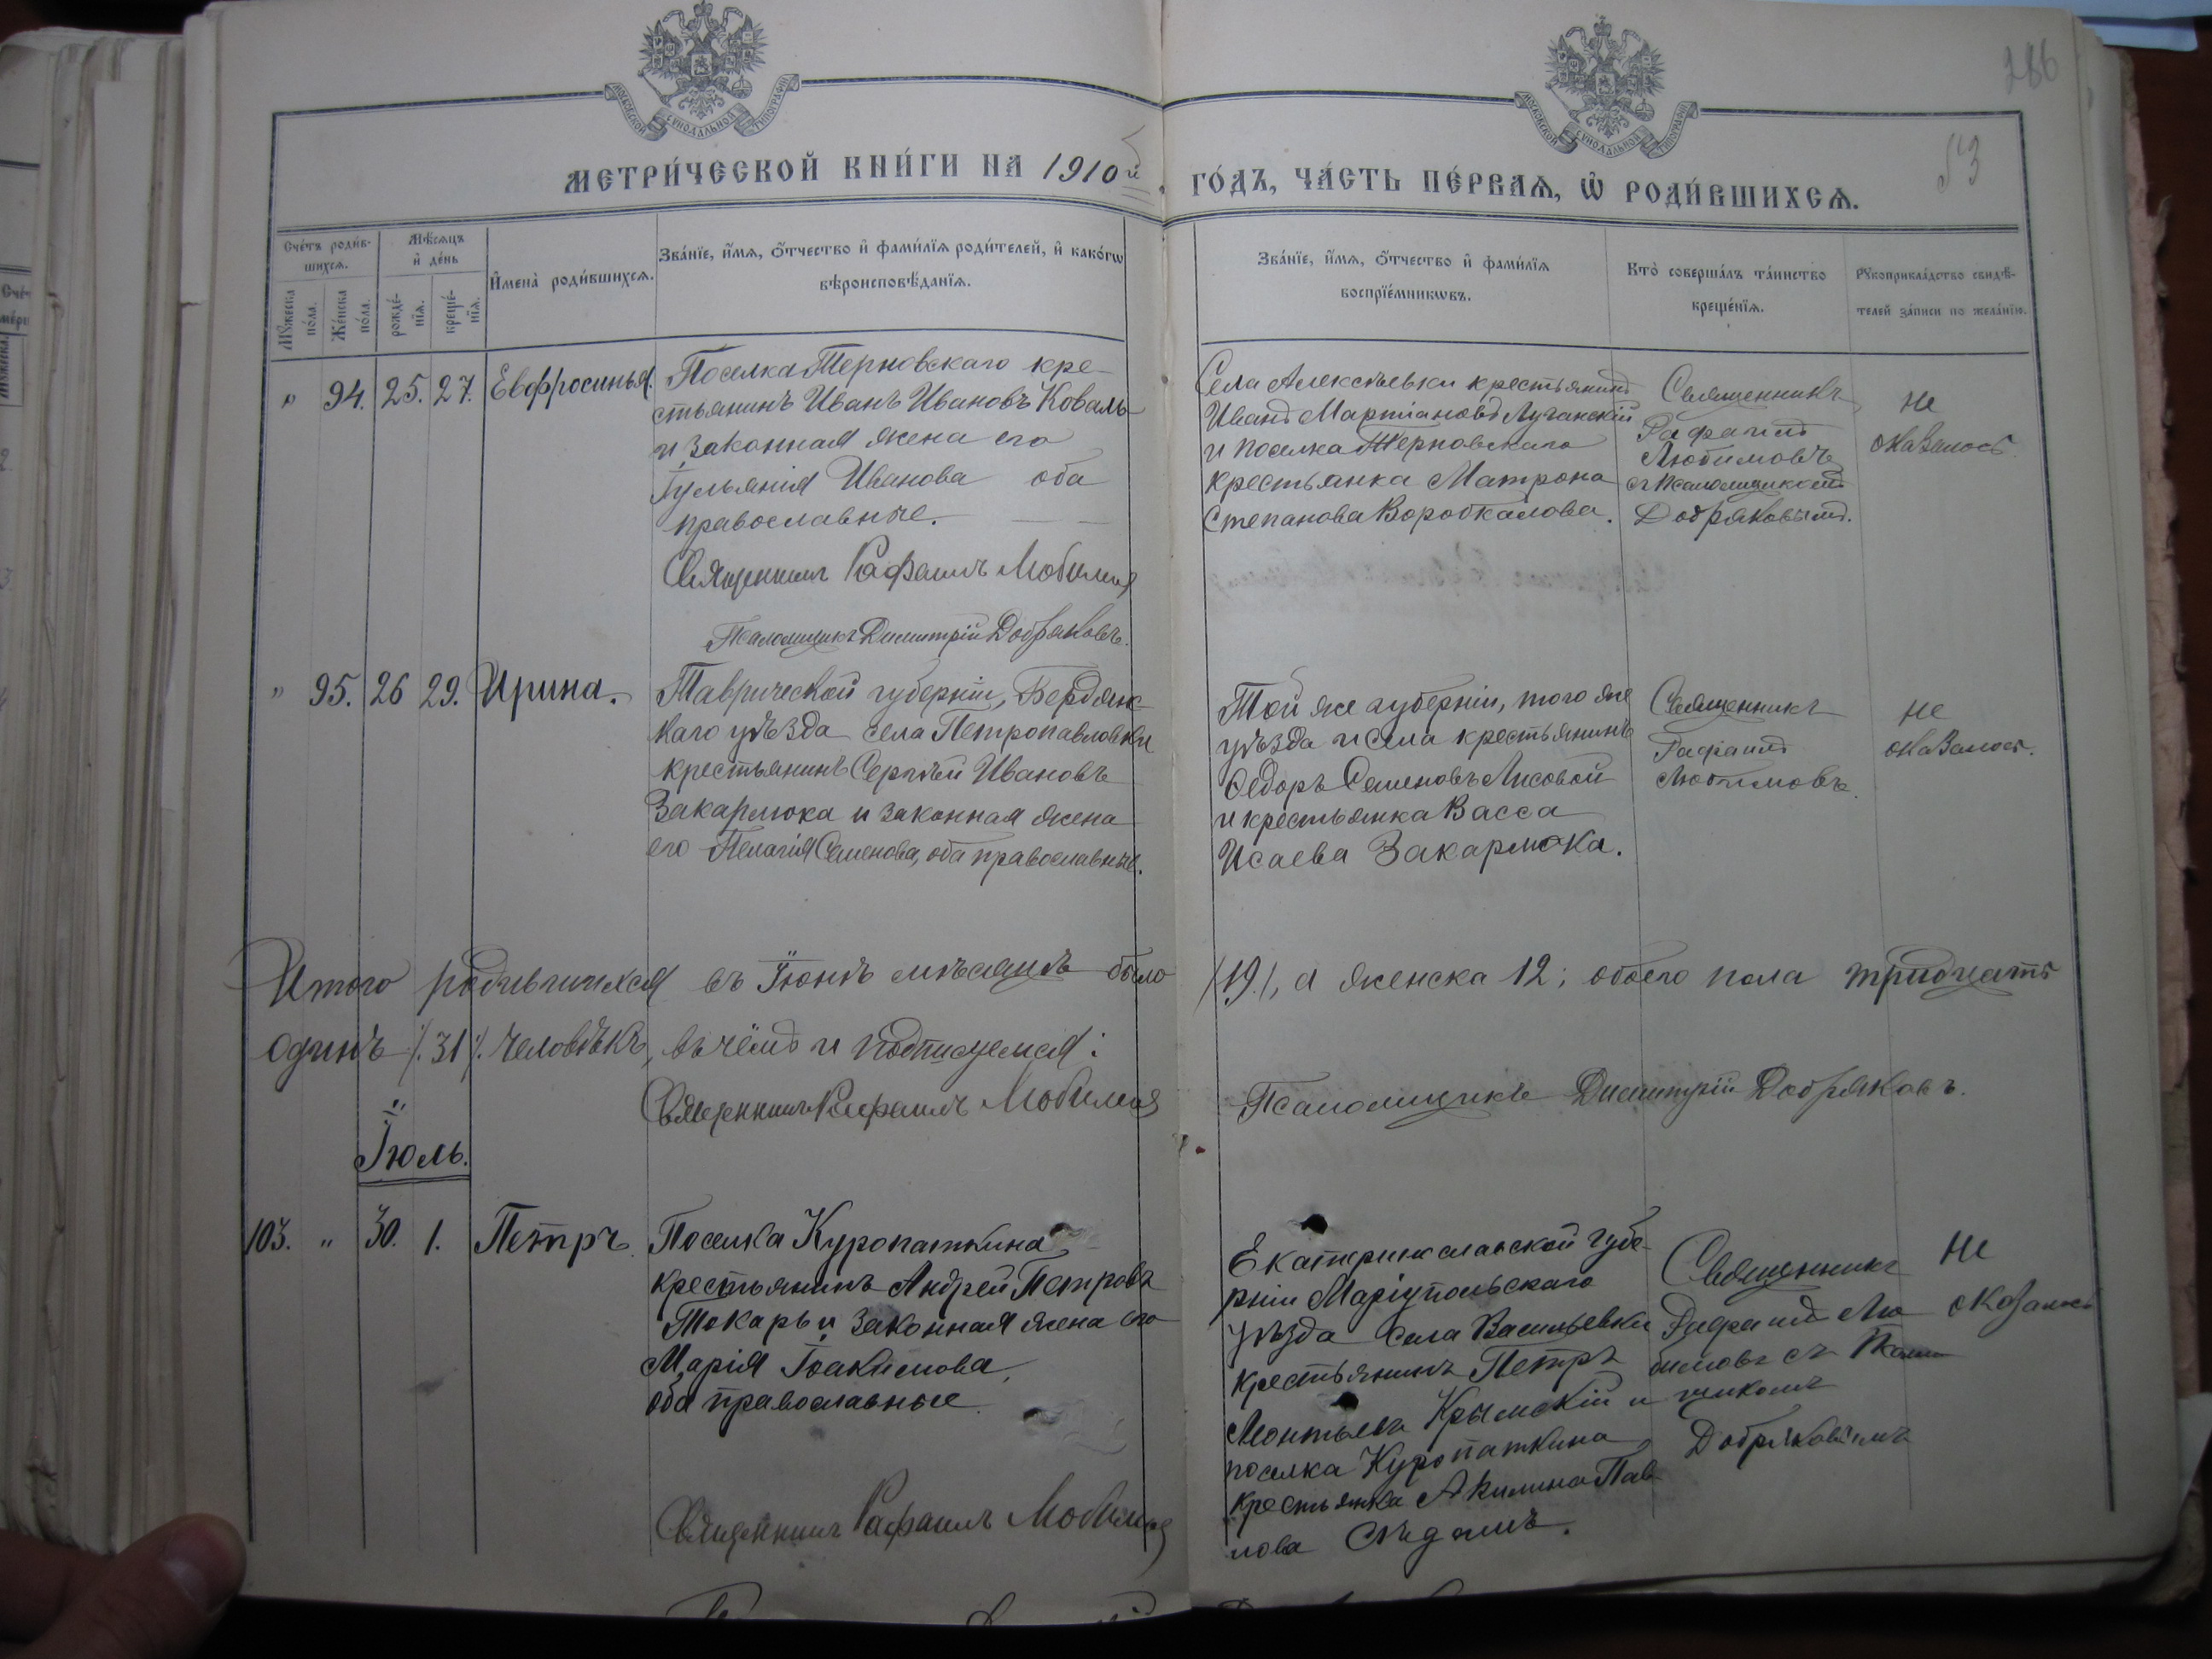 286
МОСКОВСКОЙ СѴНОДАЛЬНОЙ ТИПОГРАФІИ
МОСКОВСКОЙ СѴНОДАЛЬНОЙ ТИПОГРАФІИ
53
МЕТРИ́ЧЕСКОЙ КНИ́ГИ НА 1910й
ГО́ДЪ, ЧА́СТЬ ПЕ́РВАѦ, Ѡ РОДИ́ВШИХСѦ.
Сче́тъ роди́в-
шихсѧ.
Мꙋ́жеска по́ла.
Же́нска по́ла.
Мѣ́сѧцъ
и҆ де́нь
рожде́-
нїѧ.
креще́-
нїѧ.
И҆мена̀ роди́вшихсѧ.
Зва́нїе, и҆́мѧ, ѻ҆́тчество и҆ фами́лїѧ роди́телей, и҆ како́гѡ
вѣроисповѣ́данїѧ.
Зва́нїе, и҆́мѧ, ѻ҆́тчество и҆ фами́лїѧ
воспрїе́мникѡвъ.
Кто̀ соверша́лъ та́инство
креще́нїѧ.
Рꙋкоприкла́дство свидѣ́-
телей за́писи по жела́нїю.
" 94. 25. 27. Евфросинья.
Поселка Терновскаго кре-
стьянинъ Иванъ Ивановъ Коваль
и законная жена его
Іульянія Иванова оба
православные.
Священникъ Рафаилъ Любимовъ
Псаломщикъ Димитрій Добряковъ.
Села Алексѣевки крестьянинъ
Иванъ Мартіановъ Луганскій
и поселка Терновскаго
крестьянка Матрона
Степанова Воробкалова.
Священникъ
Рафаилъ
Любимовъ
съ псаломщикомъ
Добряковымъ.
не
оказалось.
" 95. 26 29. Ирина.
Таврической губерніи, Бердянс-
каго уѣзда села Петропавловки
крестьянинъ Сергѣй Ивановъ
Закарлюка и законная жена
его Пелагія Семенова, оба православные.
Той же губерніи, того же
уѣзда и села крестьянинъ
Ѳедоръ Семеновъ Лисовой
и крестьянка Васса
Исаева Закарлюка.
Священникъ
Рафаилъ
Любимовъ.
не
оказалось.
Итого родившихся въ Іюнѣ мѣсяцѣ было
/19./, а женска 12; обоего пола тридцать
одинъ /.31/. человѣкъ, въ чёмъ и подписуемся:
Священникъ Рафаилъ Любимовъ
Псаломщикъ Димитрій Добряковъ.
Іюль.
103. " 30. 1. Петръ
Поселка Куропаткина
крестьянинъ Андрей Петровъ
Токарь и законная жена его
Марія Іоакимова,
оба православные.
Священникъ Рафаилъ Любимовъ
Екатеринославской губе-
рніи Маріупольскаго
уѣзда села Васильевки
крестьянинъ Петръ
Леонтьевъ Крымскій и
поселка Куропаткина
крестьянка Акилина Пав-
лова
Священникъ
Рафаилъ Лю-
бимовъ съ Псалом-
щикомъ
Добряковымъ
не
оказалось